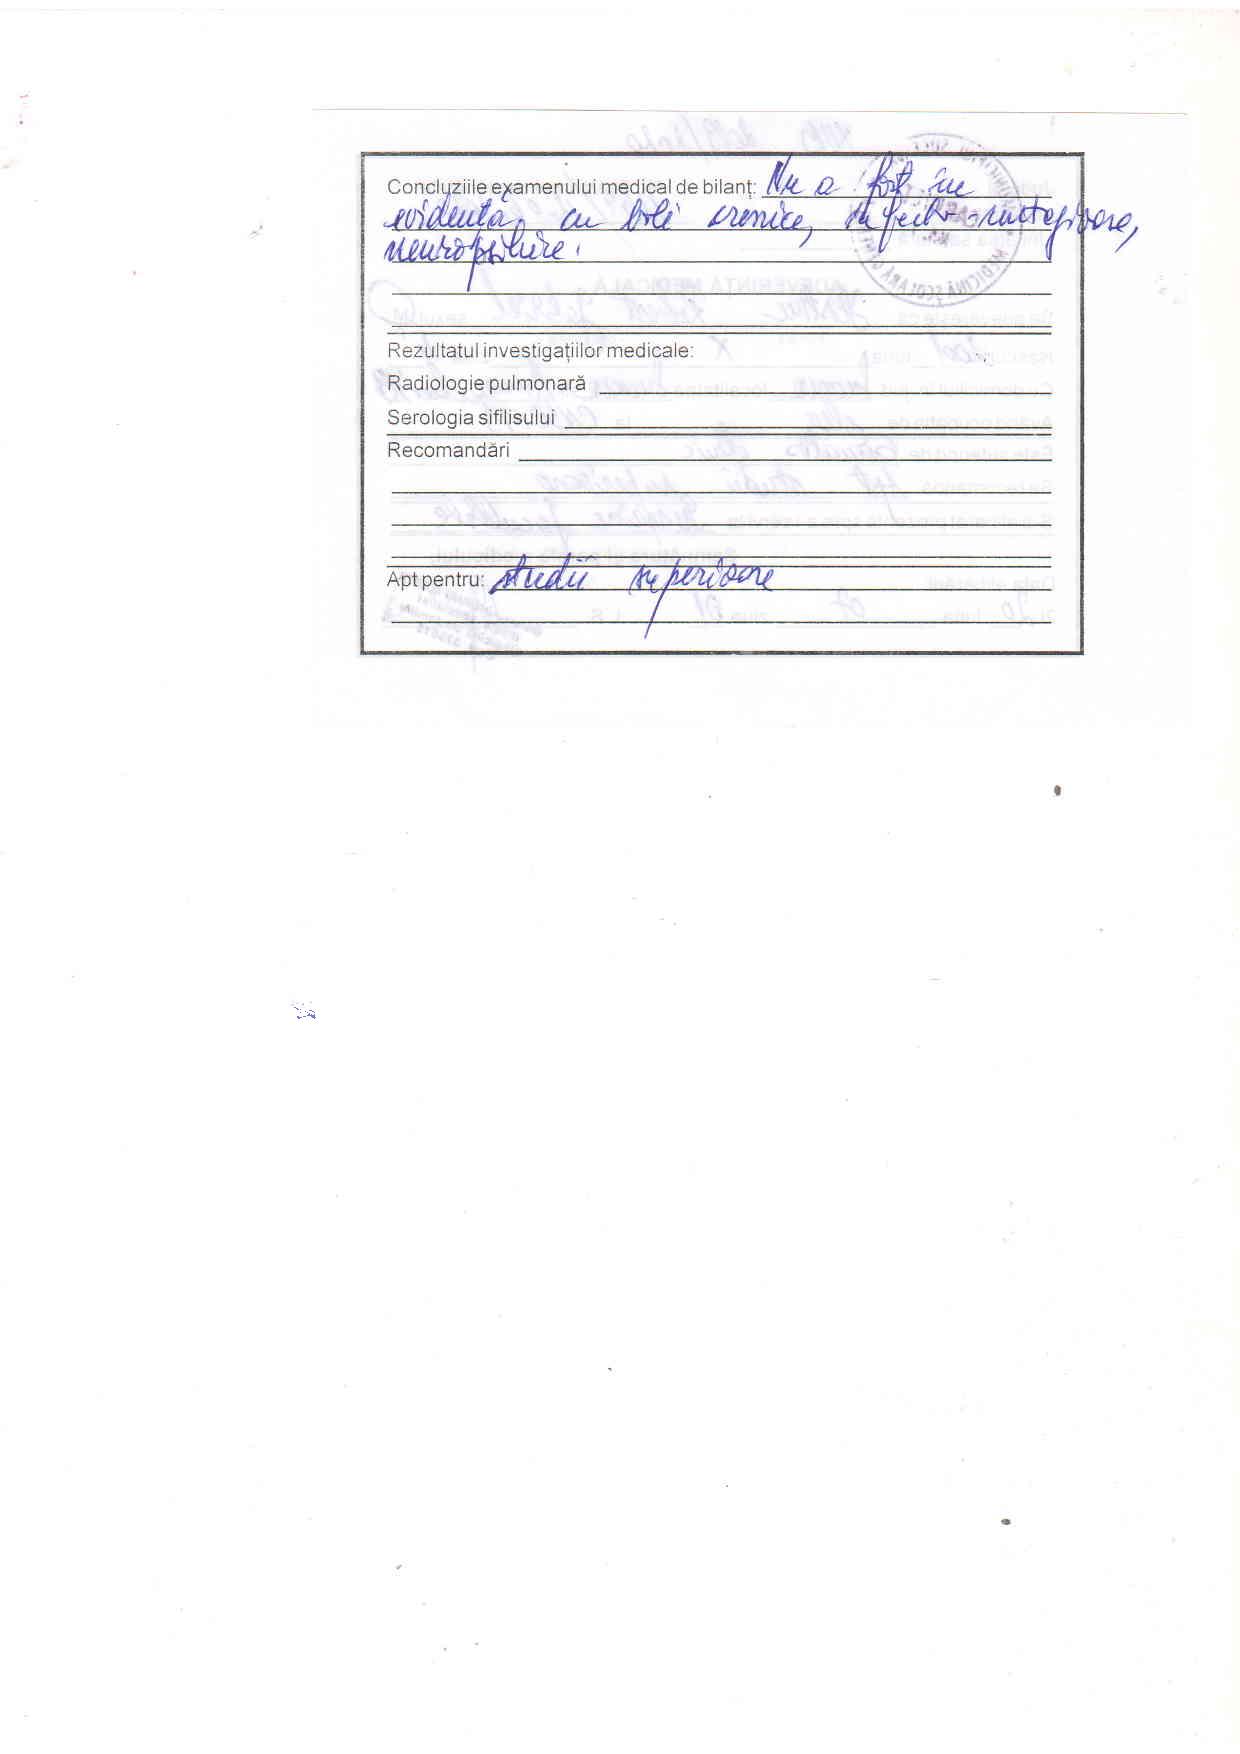 Concluziile examenului medical de bilanț: Nu a fost în
evidență cu boli cronice, infecto-contagioase,
neuropsihice.
Rezultatul investigațiilor medicale:
Radiologie pulmonară
Serologia sifilisului
Recomandări
Apt pentru: studii superioare